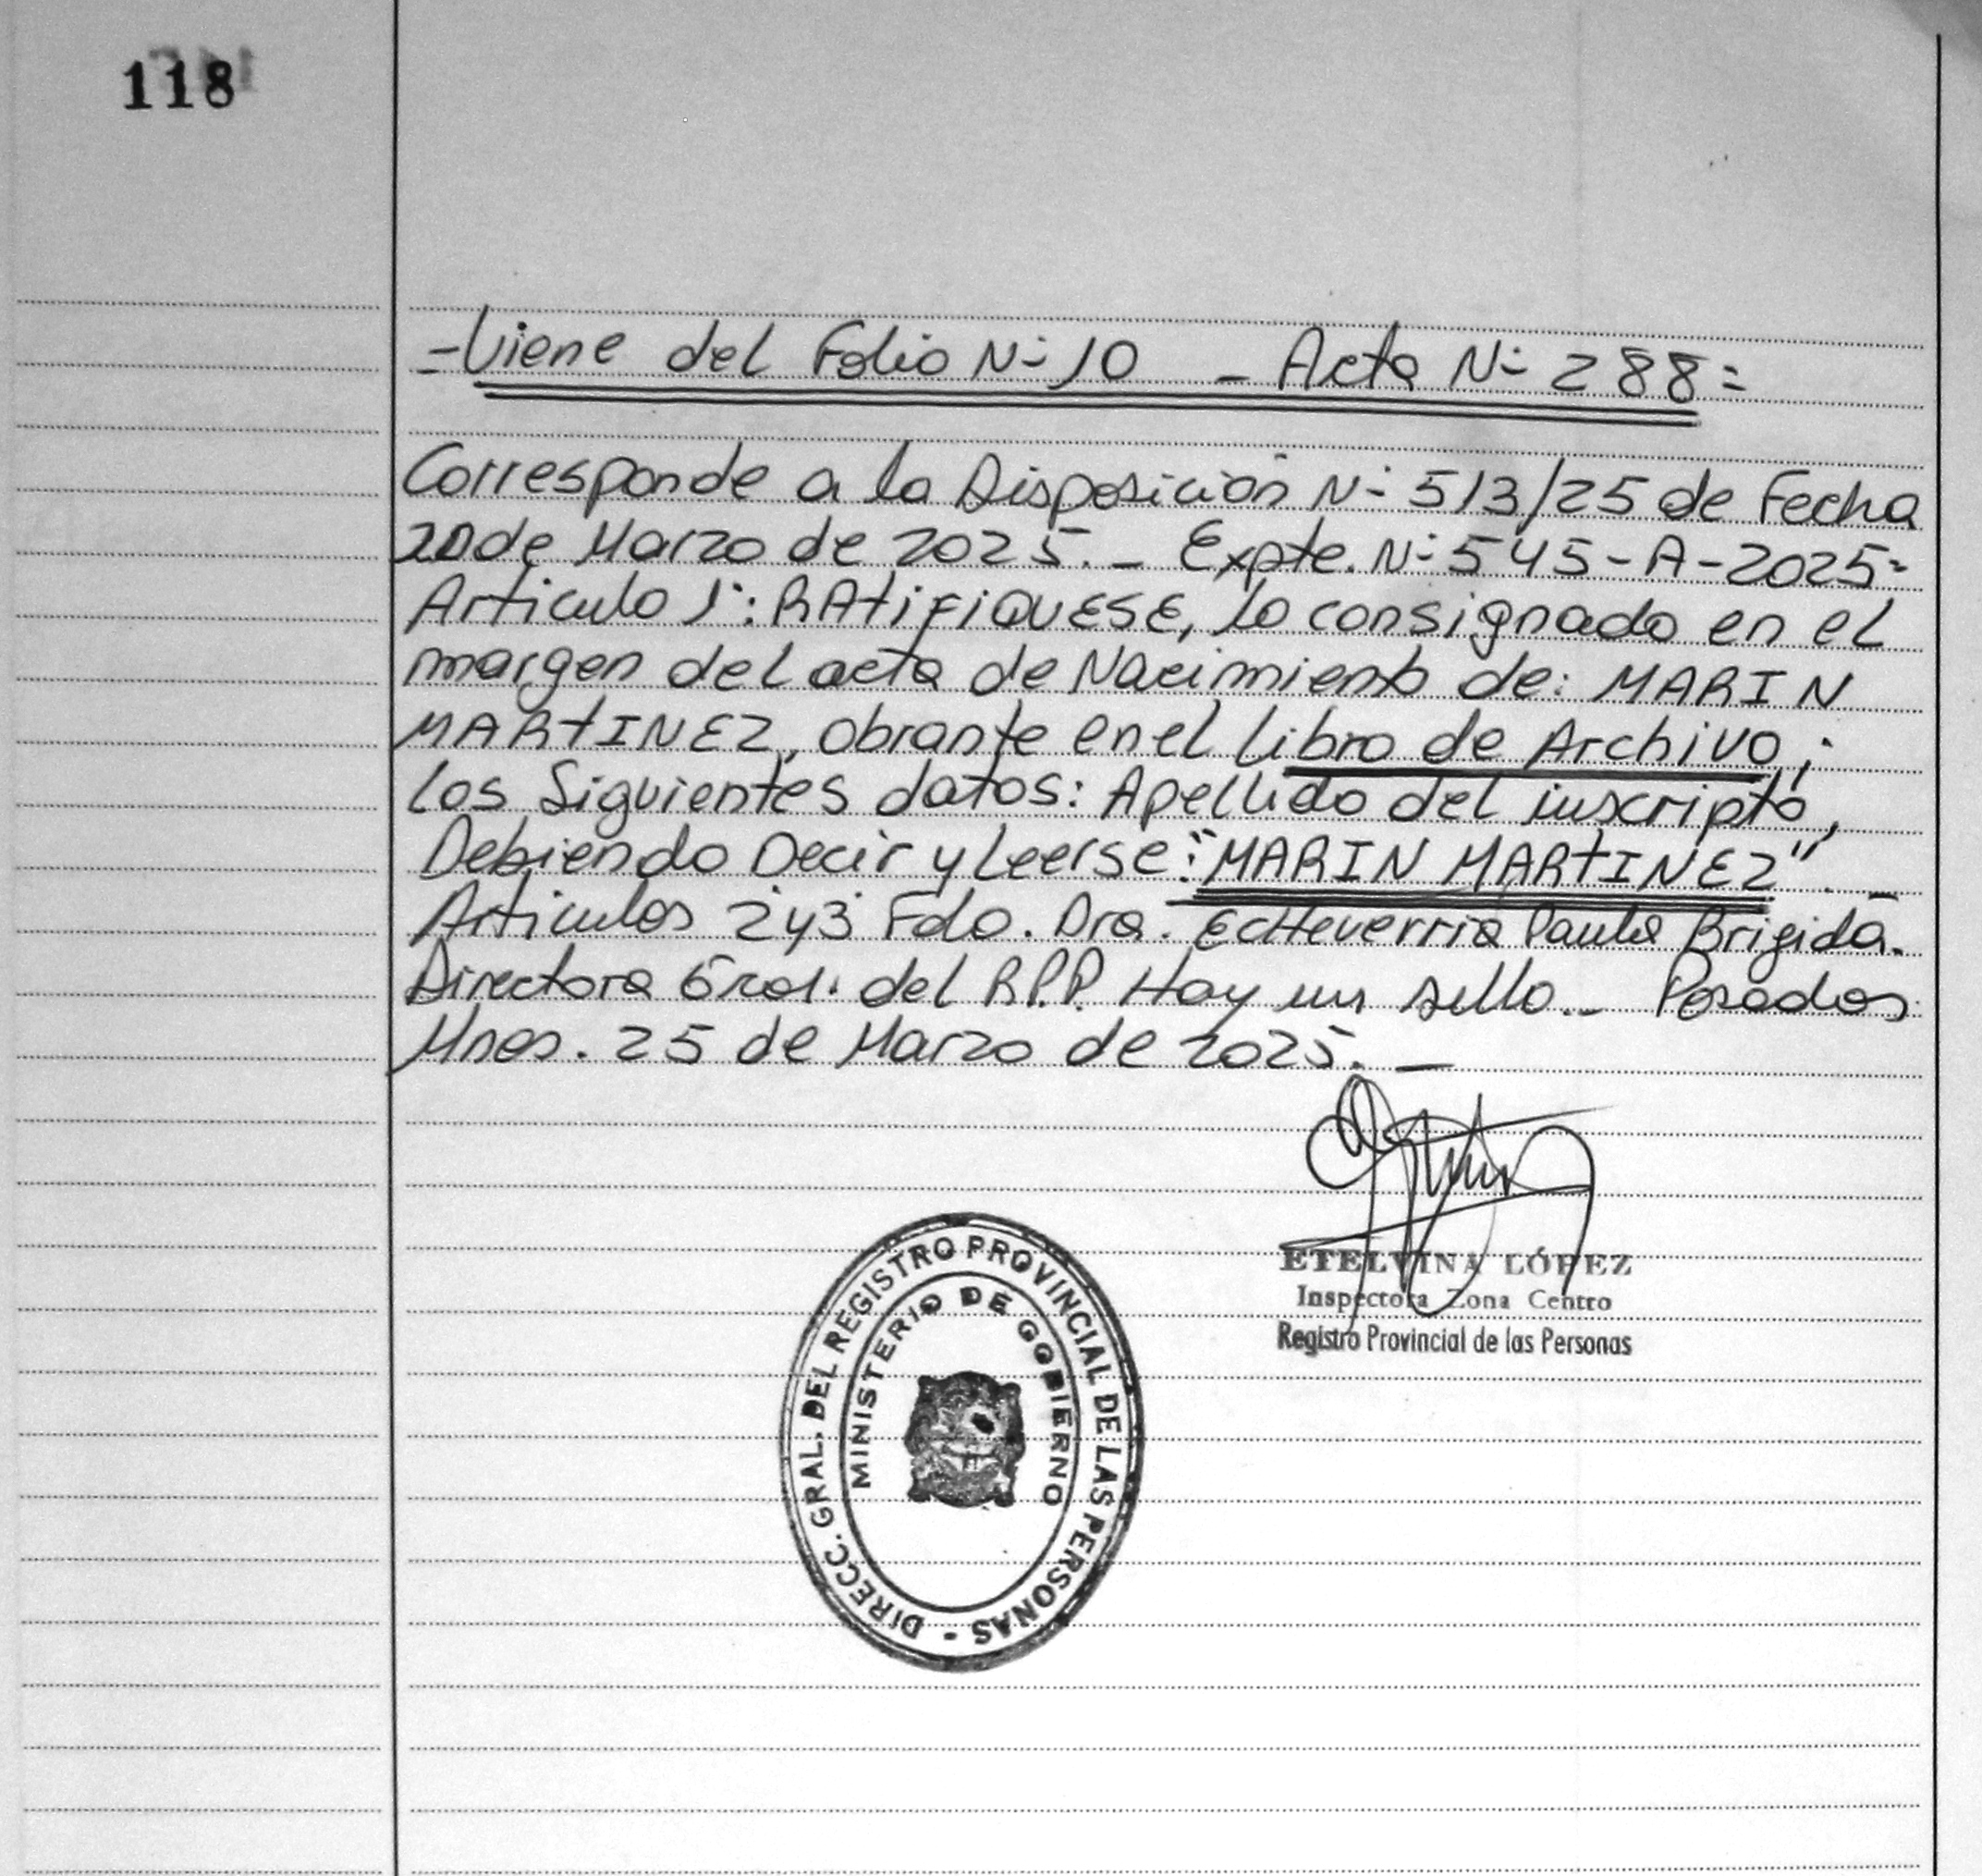 118
- Viene del Folio N- 10 - Acta N- 288=
Corresponde a la Disposición N- 513/25 de Fecha
20 de Marzo de 2025. - Expte. N- 545 - A - 2025 -
Articulo 1°: RAtiFiQUESE, lo consignado en el
margen del acta de Nacimiento de: MARIN
MARtINEZ, obrante en el libro de Archivo;
los Siguientes datos: Apellido del inscripto,
Debiendo Decir y Leerse: "MARIN MARtINEZ". -
Articulos 2 y 3 Fdo. Dra. Echeverria Paula Brigida.
Directora Gral. del R.P.P. Hay un sello. - Posadas
Mnes. 25 de Marzo de 2025. -
ETELVINA LÓPEZ
Inspectora Zona Centro
Registro Provincial de las Personas
DIRECC. GRAL. DEL REGISTRO PROVINCIAL DE LAS PERSONAS -
MINISTERIO DE GOBIERNO